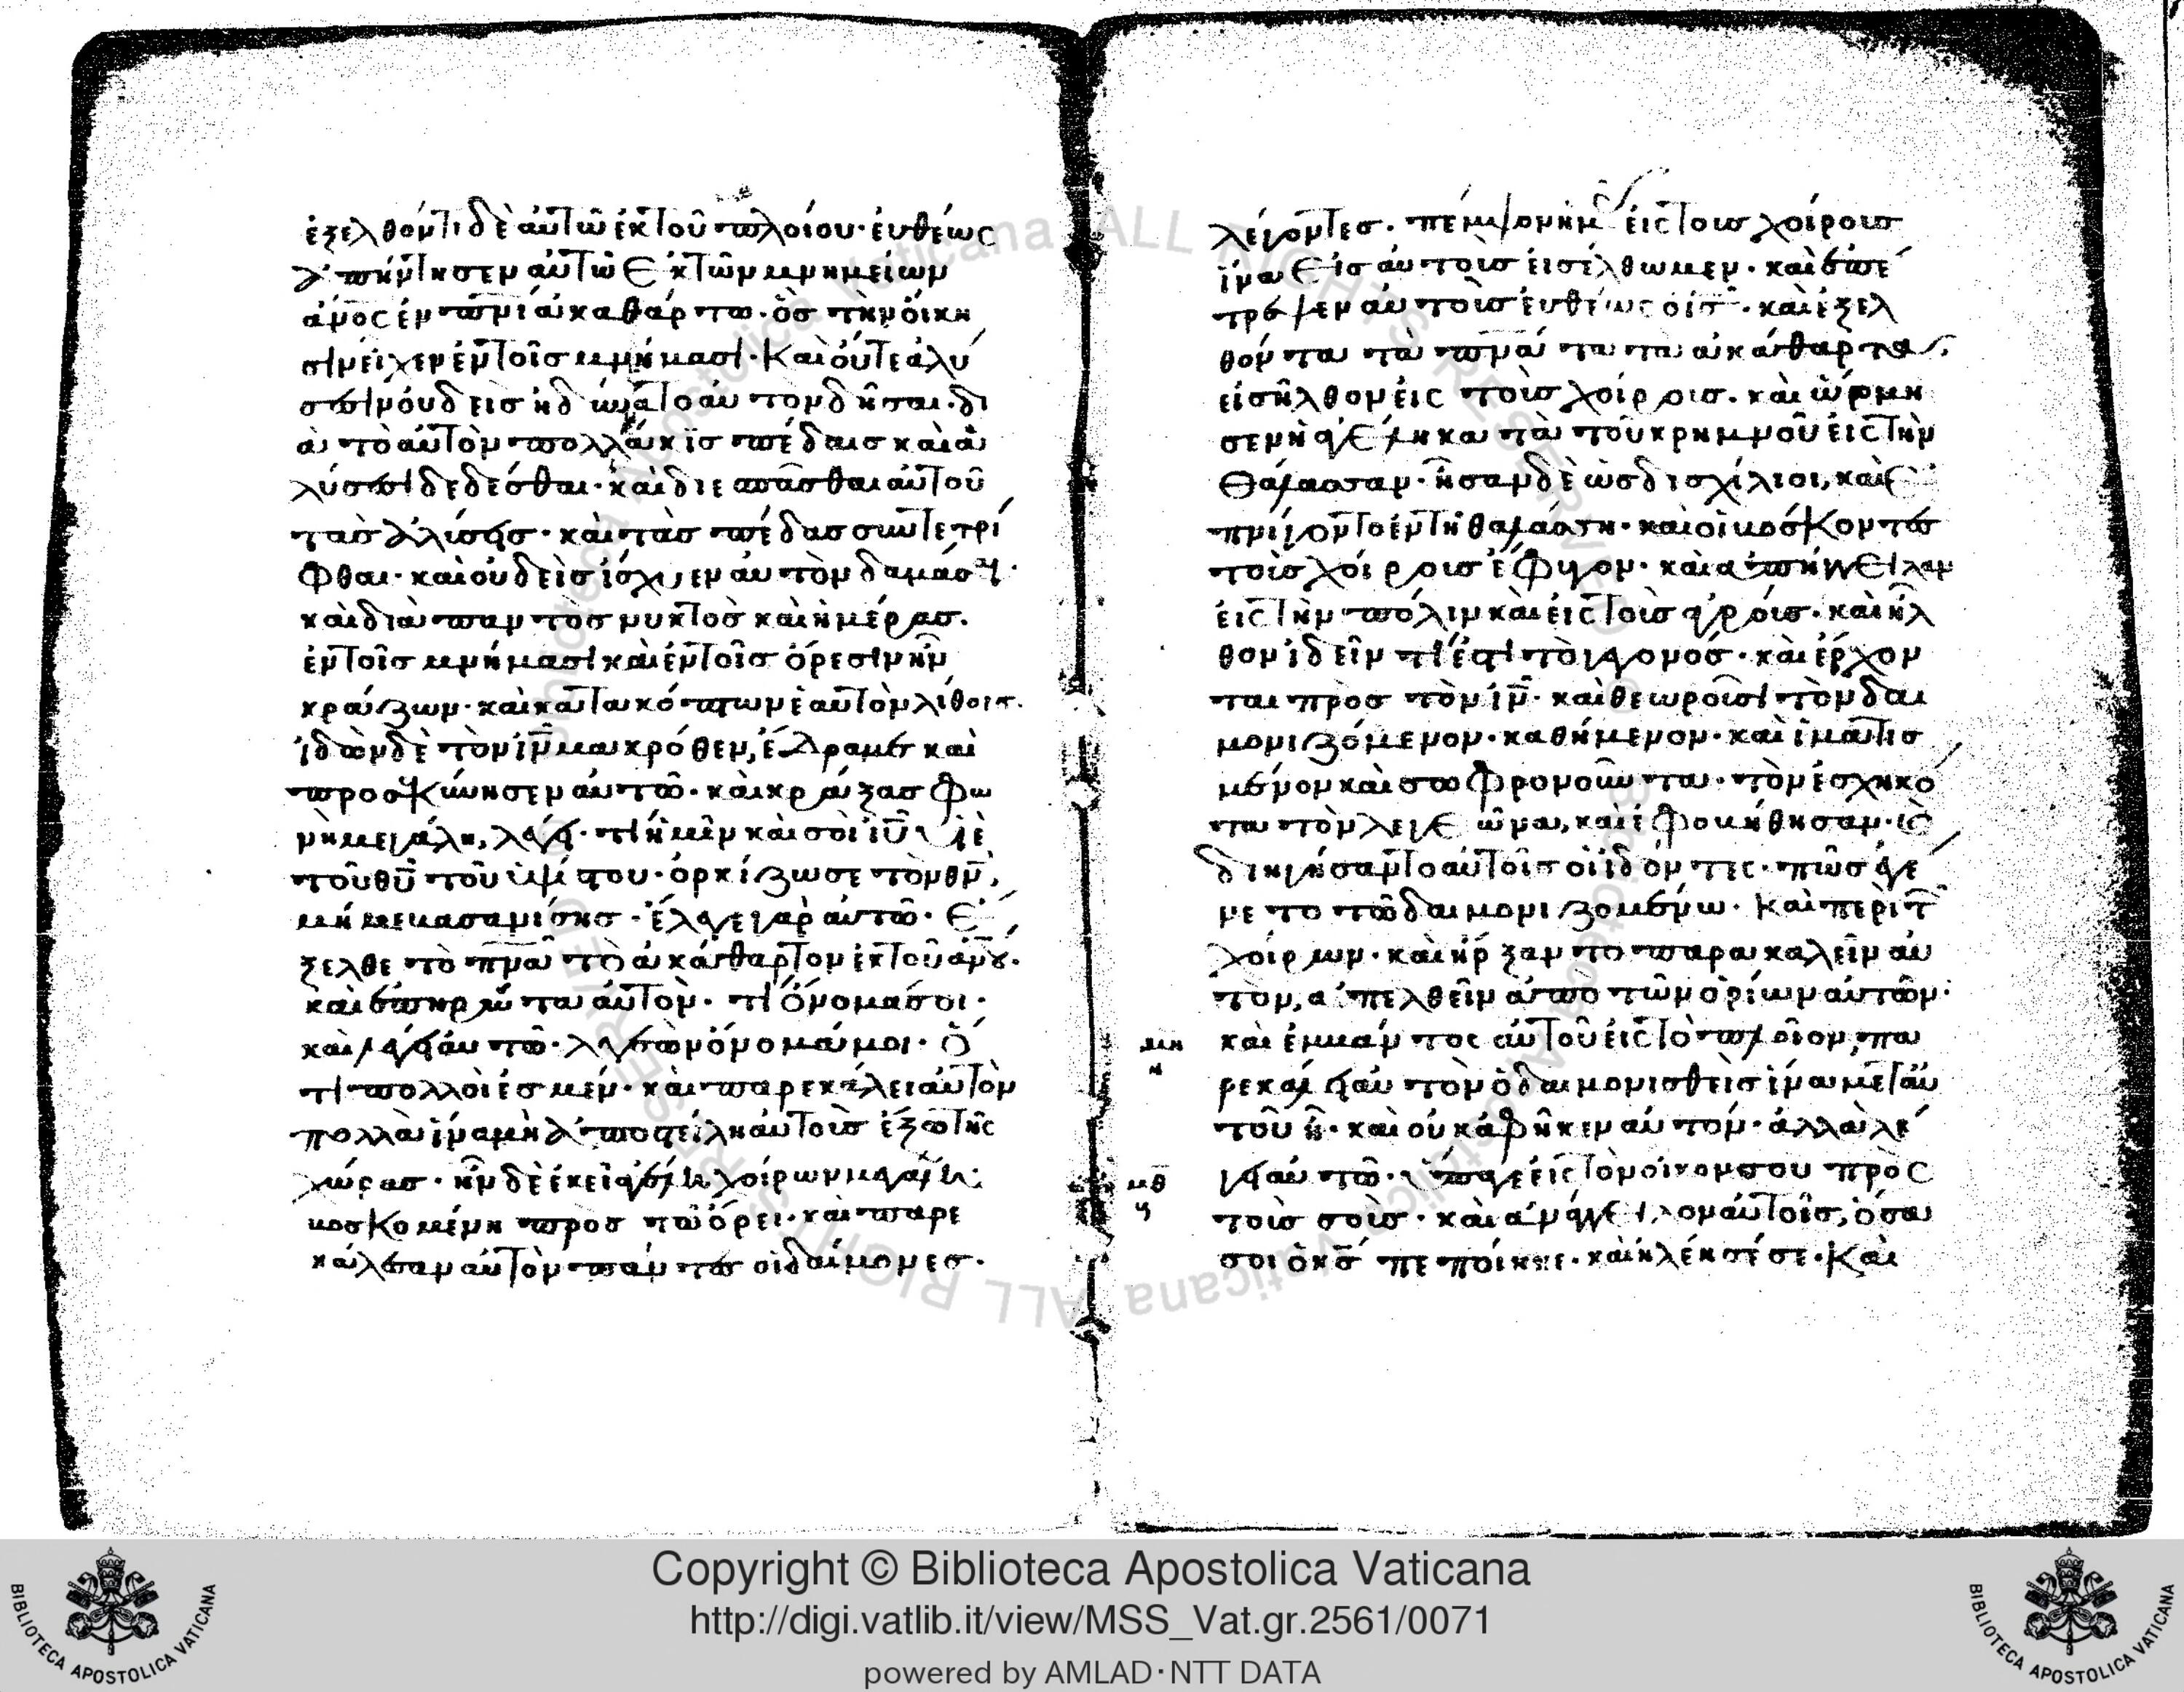 ἐξελθόντι δὲ αὐτῶ ἐκ τοῦ πλοίου· ἐυθέως
ἀπήντησεν αὐτῶ ἐκ τῶν μνημείων
ἄνος ἐν πνι ἀκαθάρτω· ὃς τὴν ὄικη
σιν εἶχεν ἐν τοῖς μνήμασι· Και ὄυτε ἁλύ
σεσιν ὀυδεὶς ἠδύνατο αὐτον δῆσαι· δι
ὰ τὸ αὐτὸν πολλάκις πέδαις καὶ ἁ
λύσεσι δεδέσθαι· καὶ διεσπᾶσθαι αὐτοῦ
τὰς ἁλύσεις· καὶ τὰς πέδας συντετρί
φθαι· καὶ οὐδεὶς ἴσχυεν αὐτὸν δαμάσαι·
καὶ διὰ παντὸς νυκτὸς καὶ ἡμέρας.
ἐν τοῖς μνήμασι καὶ ἐν τοῖς ὄρεσιν ἦν
κράζων· καὶ κατακόπτων ἑαυτὸν λίθοις.
ἰδὼν δὲ τὸν ἰν μακρόθεν, ἔδραμεν καὶ
προσκύνησεν αὐτῶ· καὶ κράξας φω
νῆ μεγάλη, λέγει· τί ἡμῖν καὶ σοὶ ιῦ υἱὲ
τοῦ θῦ τοῦ ὑψίστου· ὁρκίζω σε τὸν θν,
μή με βασανίσης· ἔλεγε γὰρ αὐτῶ· ἔ
ξελθε τὸ πνα τὸ ἀκάθαρτον ἐκ τοῦ ἀνου·
καὶ ἐπηρώτα αὐτὸν· τί ὄνομά σοι·
καὶ λέγει αὐτῶ· λεγεὼν ὄνομά μοι· ὅ
τι πολλοὶ ἐσμέν· καὶ παρεκάλει αὐτὸν
πολλὰ ἵνα μὴ ἀποστείλη αὐτοὺς ἔξω τῆς
χώρας· ἦν δὲ ἐκεῖ ἀγέλη χοίρων μεγάλη·
βοσκομένη πρὸς τῶ ὄρει· καὶ παρε
κάλεσαν αὐτὸν πάντες οἱ δαίμονες·
λέγοντες· πέμψον ἡμᾶς εἰς τοὺς χοίρους
ἵνα εἰς αὐτοὺς εἰσέλθωμεν· καὶ ἐπέ
τρεψεν αὐτοὺς ἐυθέως ὁ ἰς· καὶ ἐξελ
θόντα τὰ πνατα τὰ ἀκάθαρτα,
εἰσῆλθον εἰς τοὺς χοίρους· καὶ ὥρμη
σεν ἡ ἀγέλη κατὰ τοῦ κρημνοῦ εἰς τὴν
θάλασσαν· ἦσαν δὲ ὡς δισχίλιοι, καὶ ἐ
πνίγοντο ἐν τῆ θαλάσση· καὶ οἱ βόσκοντες
τοὺς χοίρους ἔφυγον· καὶ ἀπήγγειλαν
εἰς τὴν πόλιν καὶ εἰς τοὺς ἀγρούς· καὶ ἦλ
θον ἰδεῖν τί ἐστι τὸ γεγονός· καὶ ἔρχον
ται πρὸς τὸν ἰν· καὶ θεωροῦσι τὸν δαι
μονιζόμενον· καθήμενον· καὶ ἱματισ
μένον καὶ σωφρονοῦντα· τὸν ἐσχηκό
τα τὸν λεγεῶνα, καὶ ἐφοβήθησαν· καὶ
διηγήσαντο αὐτοῖς οἱ ἰδόντες· πῶς ἐγέ
νετο τῶ δαιμονιζομένω· Καὶ περὶ τῶν
χοίρων· καὶ ἤρξαντο παρακαλεῖν αὐ
τὸν, ἀπελθεῖν ἀπὸ τῶν ὁρίων αὐτῶν·
μη
η
καὶ ἐμβάντος αὐτοῦ εἰς τὸ πλοῖον, πα
ρεκάλει αὐτὸν ὁ δαιμονισθεὶς ἵνα μετ' αὐ
τοῦ ἦ· καὶ οὐκ ἀφῆκεν αὐτόν· ἀλλὰ λέ
μθ
γει αὐτῶ· ὕπαγε εἰς τὸν οἶκον σου πρὸς
τοὺς σοὺς· καὶ ἀνάγγειλον αὐτοῖς, ὅσα
σοι ὁ κς πεποίηκε· καὶ ἠλέησέ σε· Καὶ
Copyright © Biblioteca Apostolica Vaticana
http://digi.vatlib.it/view/MSS_Vat.gr.2561/0071
powered by AMLAD·NTT DATA
BIBLIOTECA APOSTOLICA VATICANA
BIBLIOTECA APOSTOLICA VATICANA